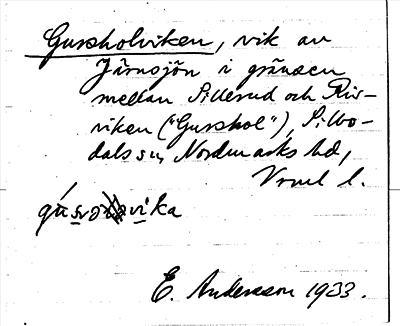 Gussholviken, vik av
Järnsjön i gränsen
mellan Sillerud och Ris-
viken ("Gusshol"), Sillbo-
dals sn, Nordmarks hd,
Vrml l.
E. Andersson 1933.